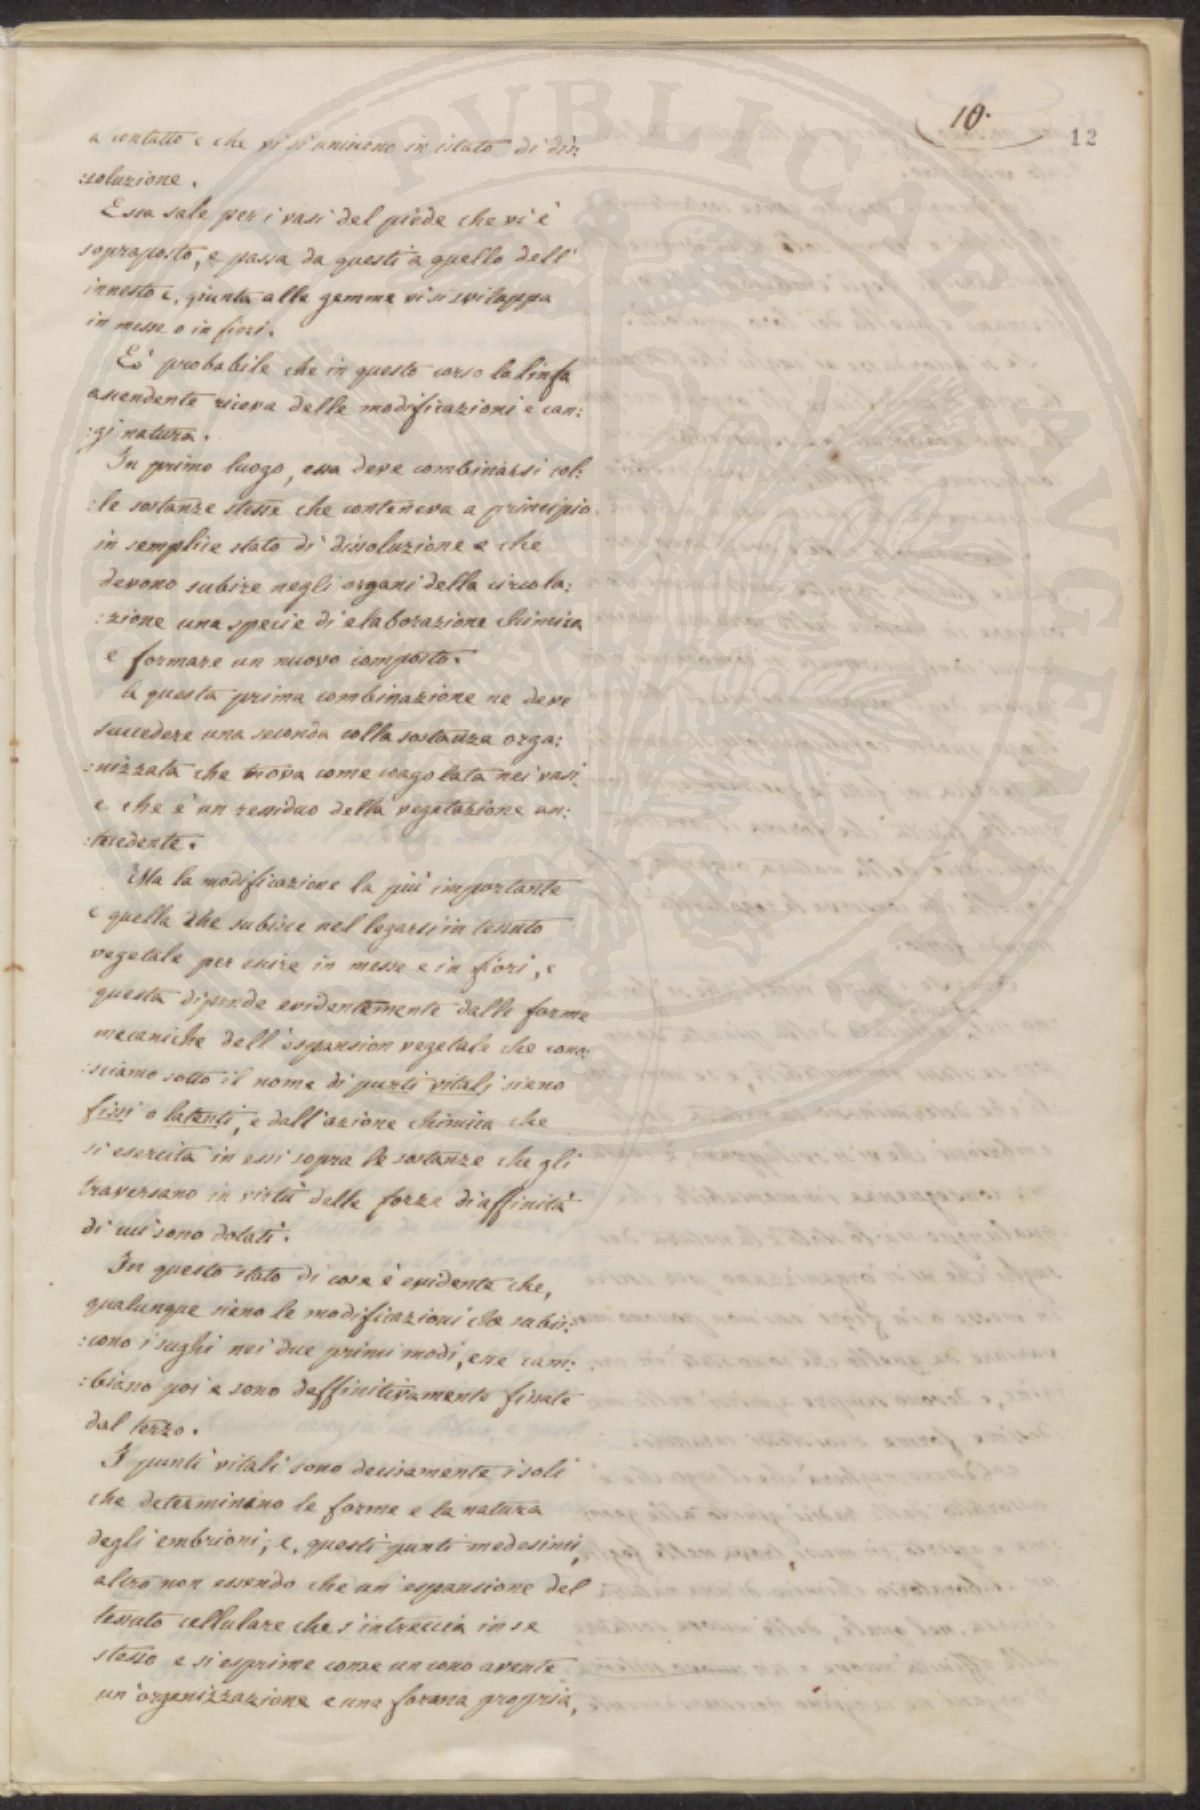 10.
12
a contatto e che vi si uniscono in istato di dis:
:soluzione.
Essa sale per i vasi del piede che vi è
sopraposto, e passa da questi a quello dell'
innesto e, giunta alle gemme vi si sviluppa
in messe o in fiori.
E' probabile che in questo corso la linfa
ascendente riceva delle modificazioni e can:
:gi natura.
In primo luogo, essa deve combinarsi col:
:le sostanze stesse che conteneva a principio
in semplice stato di dissoluzione e che
devono subire negli organi della circola:
:zione una specie di elaborazione chimica
e formare un nuovo composto.
A questa prima combinazione ne deve
succedere una seconda colla sostanza orga:
:nizzata che trova come coagolata nei vasi
e che è un residuo della vegetazione an:
:tecedente.
Ma la modificazione la più importante
è quella che subisce nel legarsi in tessuto
vegetale per escire in messe e in fiori, e
questa dipende evidentemente dalle forme
mecaniche dell'espansion vegetale che cono:
:sciamo sotto il nome di punti vitali sieno
fissi o latenti, e dall'azione chimica che
si esercita in essi sopra le sostanze che gli
traversano in virtù delle forze di affinità
di cui sono dotati.
In questo stato di cose è evidente che,
qualunque sieno le modificazioni che subis:
:cono i sughi nei due primi modi, esse cam:
:biano poi e sono deffinitivamente fissate
dal terzo.
I punti vitali sono decisamente i soli
che determinano le forme e la natura
degli embrioni; e, questi punti medesimi,
altro non essendo che un'espansione del
tessuto cellulare che s'intreccia in se
stesso e si esprime come un cono avente
un'organizzazione e una forma propria,
PVBLICAE AVGENDAE